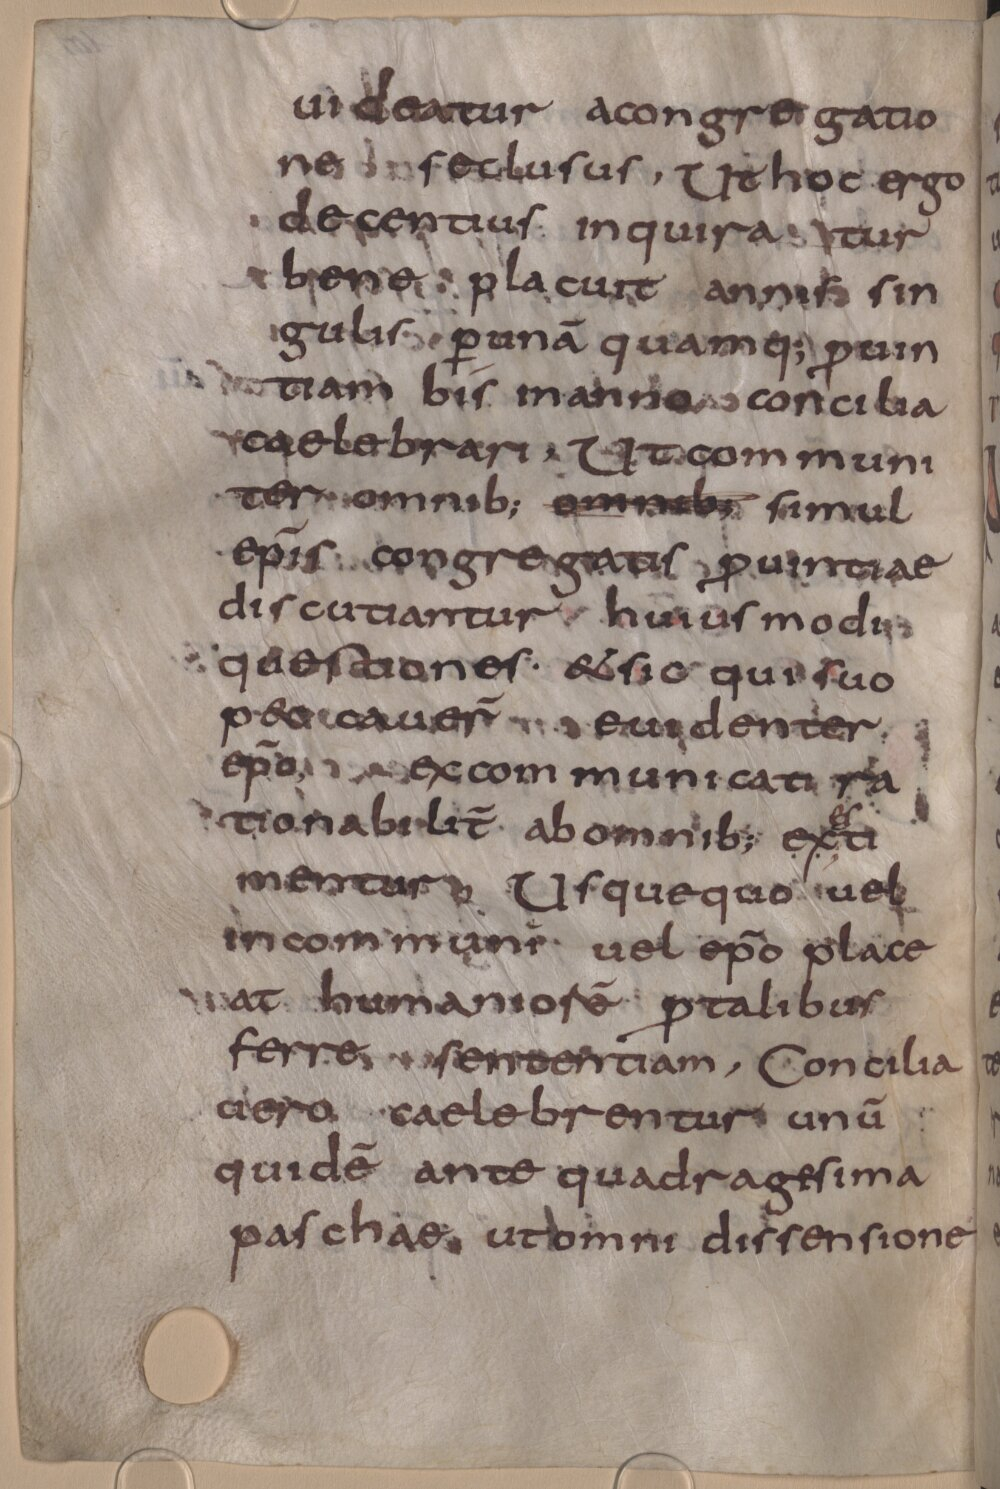 uideatur acongregatio
ne seclusus, Ut hoc ergo
decentius inquiratur
bene placuit annis sin
gulis p̱ unā quamq; ꝓuin
tiam bis inanno concilia
caelebrari, Ut communi
ter omnib; omnib; simul
ep̄is congregatis ꝓuintiae
discutiantur huiusmodi
questiones. &sic qui suo
peccauer̄ euidenter
ep̄o excommunicati ra
tionabilit̄ abomnib; exti
mentur, Usquequo uel
incommuni uel ep̄o place
at humaniorē ꝓtalibus
ferre sententiam, Concilia
uero caelebrentur unū
quidē ante quadragesima
paschae, utomni dissensione